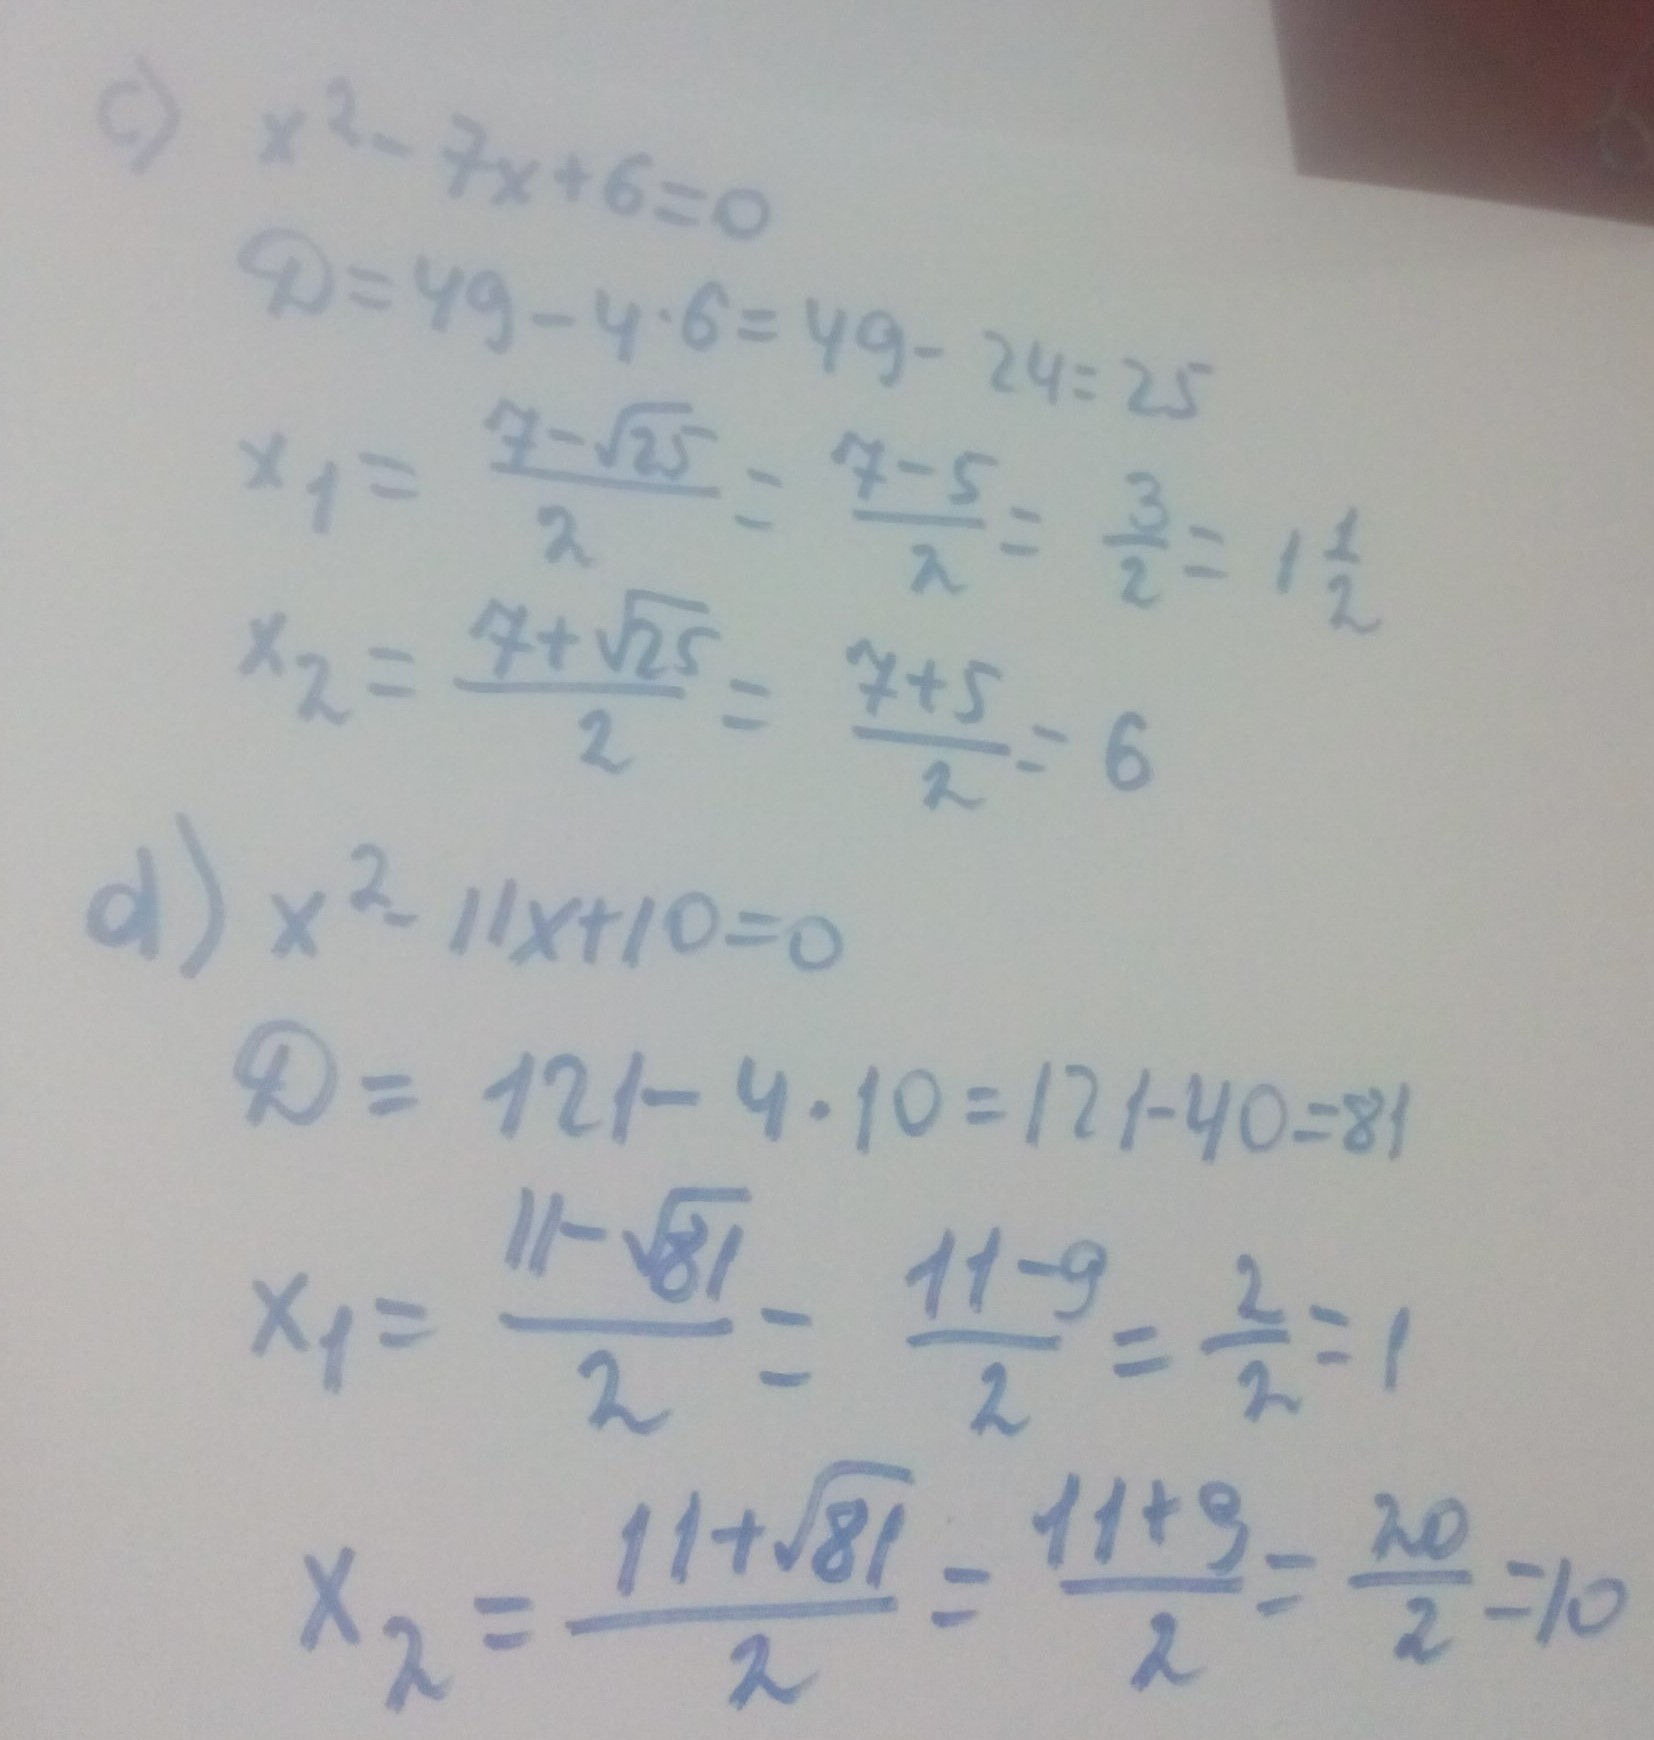 c) x² - 7x + 6 = 0
D = 49 - 4·6 = 49 - 24 = 25
x₁ = (7 - √25)/2 = (7 - 5)/2 = 3/2 = 1 1/2
x₂ = (7 + √25)/2 = (7 + 5)/2 = 6
d) x² - 11x + 10 = 0
D = 121 - 4·10 = 121 - 40 = 81
x₁ = (11 - √81)/2 = (11 - 9)/2 = 2/2 = 1
x₂ = (11 + √81)/2 = (11 + 9)/2 = 20/2 = 10